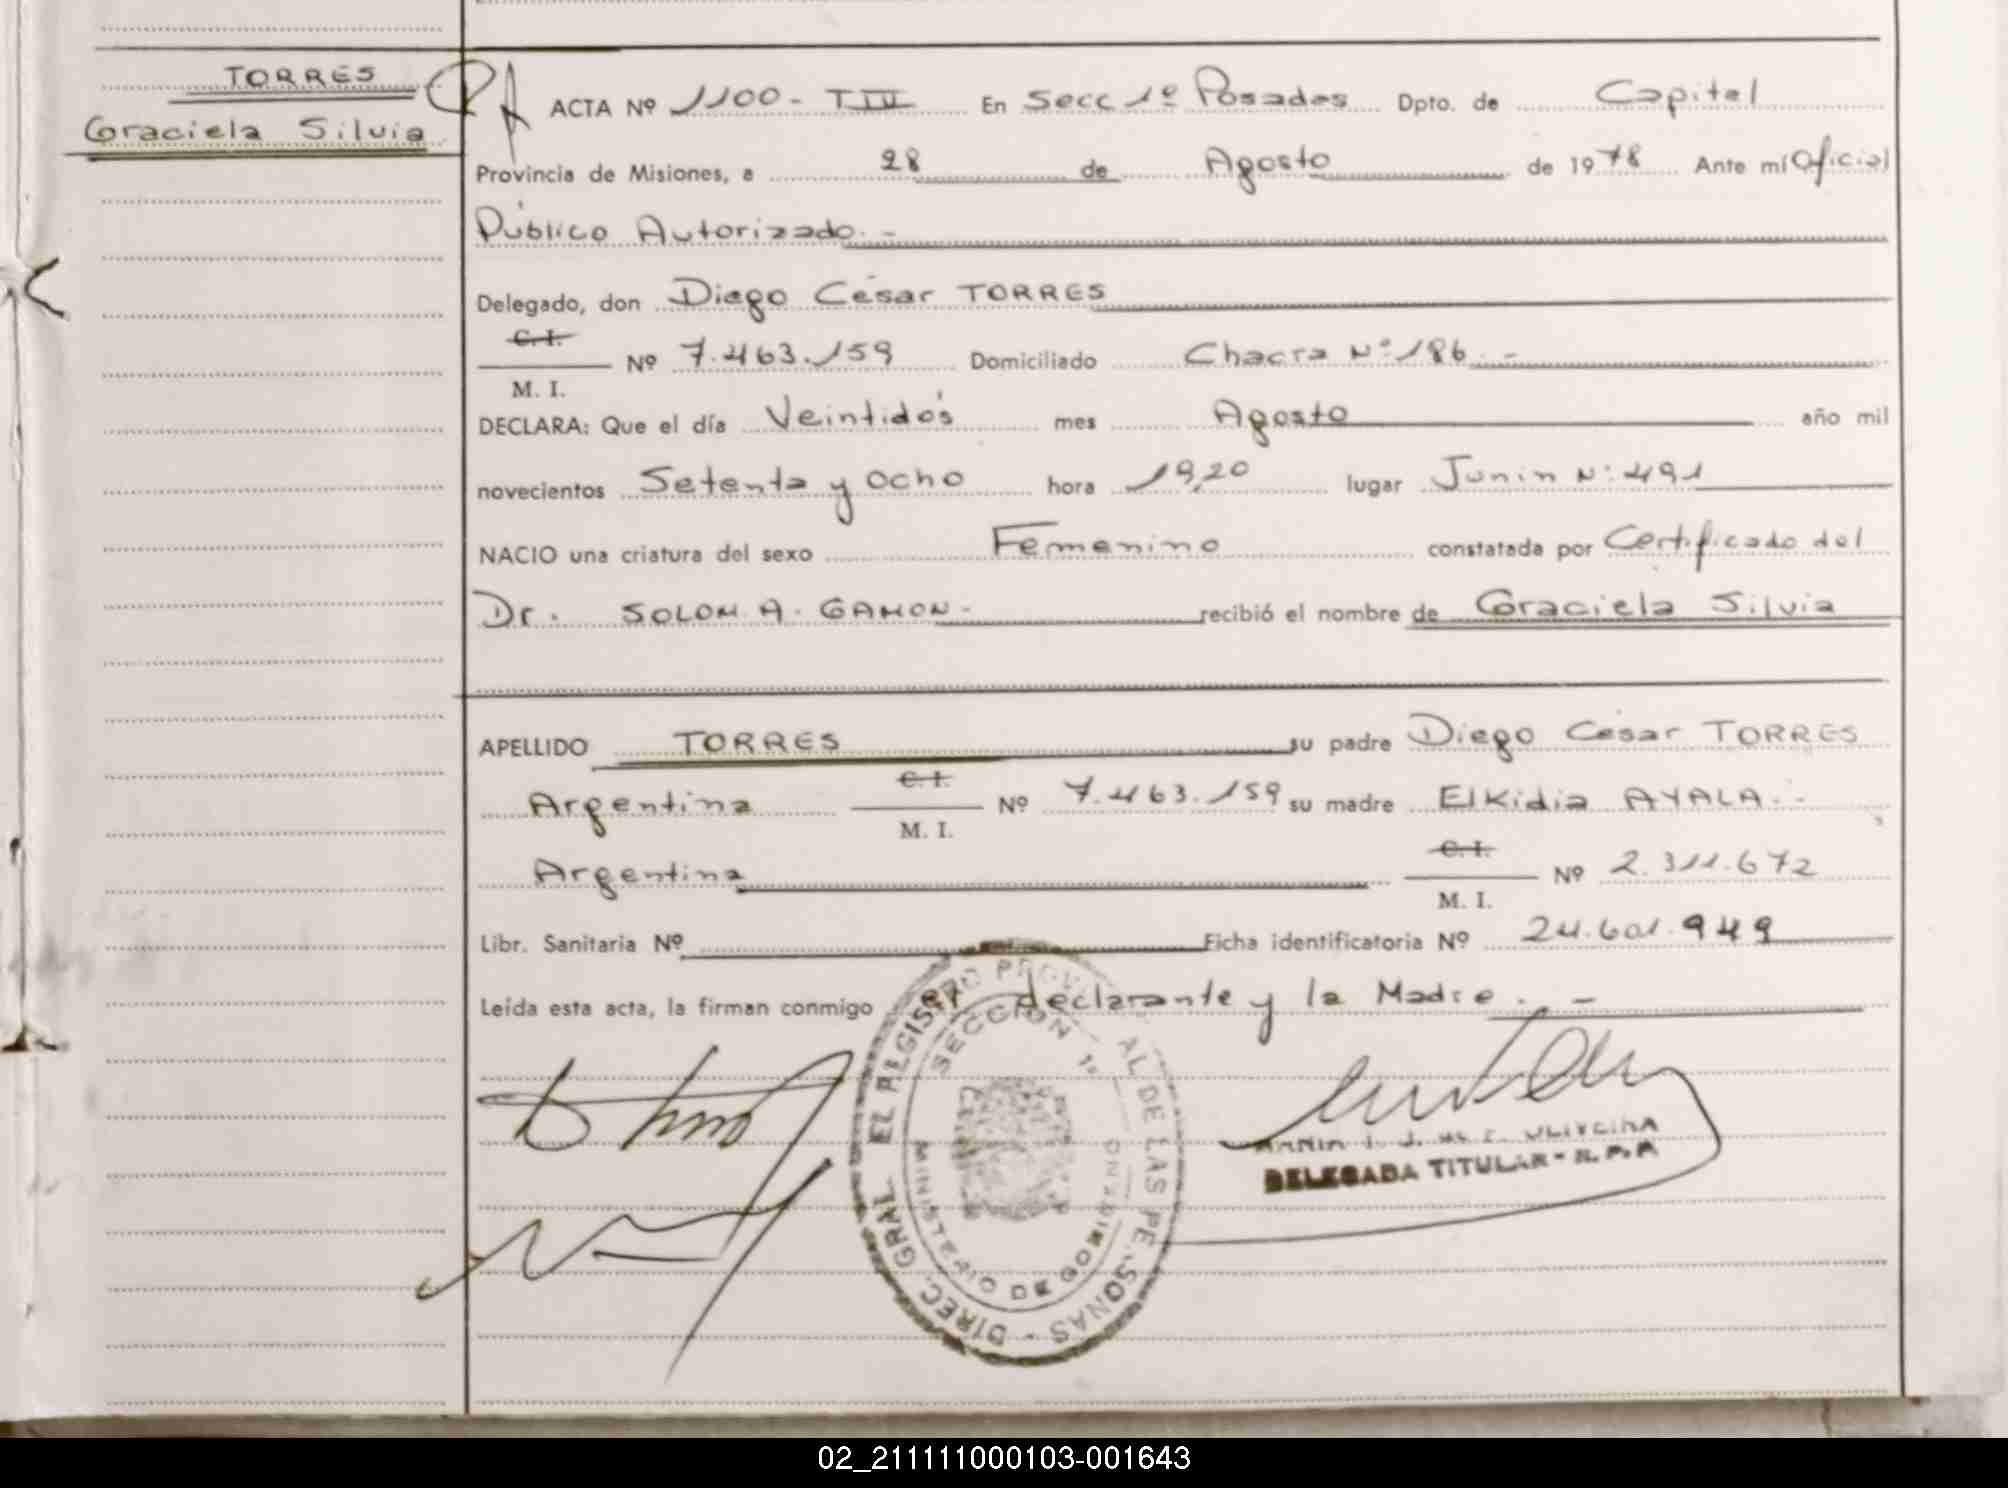 TORRES
Graciela Silvia
ACTA Nº 1100 - TIII En Secc 1º Posadas Dpto. de Capital
Provincia de Misiones, a 28 de Agosto de 1978 Ante mí Oficial
Público Autorizado.-
Delegado, don Diego César TORRES
C. I.
M. I. Nº 7.463.159 Domiciliado Chacra Nº 186.-
DECLARA: Que el día Veintidós mes Agosto año mil
novecientos Setenta y Ocho hora 19,20 lugar Junin Nº 491
NACIO una criatura del sexo Femenino constatada por Certificado del
Dr. SOLOM. A. GAMON.- recibió el nombre de Graciela Silvia
APELLIDO TORRES su padre Diego César TORRES
Argentina C. I. M. I. Nº 7.463.159 su madre Elkidia AYALA.-
Argentina C. I. M. I. Nº 2.311.672
Libr. Sanitaria Nº Ficha identificatoria Nº 24.601.949
Leída esta acta, la firman conmigo el declarante y la Madre.-
DIREC. GRAL. EL REGISTRO PROVINCIAL DE LAS PERSONAS
SECCION 1º
MINISTERIO DE GOBIERNO
OLIVEIRA
DELEGADA TITULAR - R. P. P
02_211111000103-001643